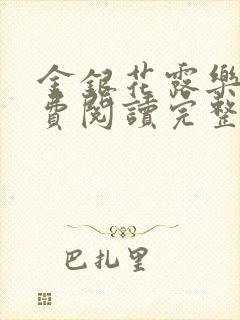 金銀花露樂
費閱讀完整
巴扎里